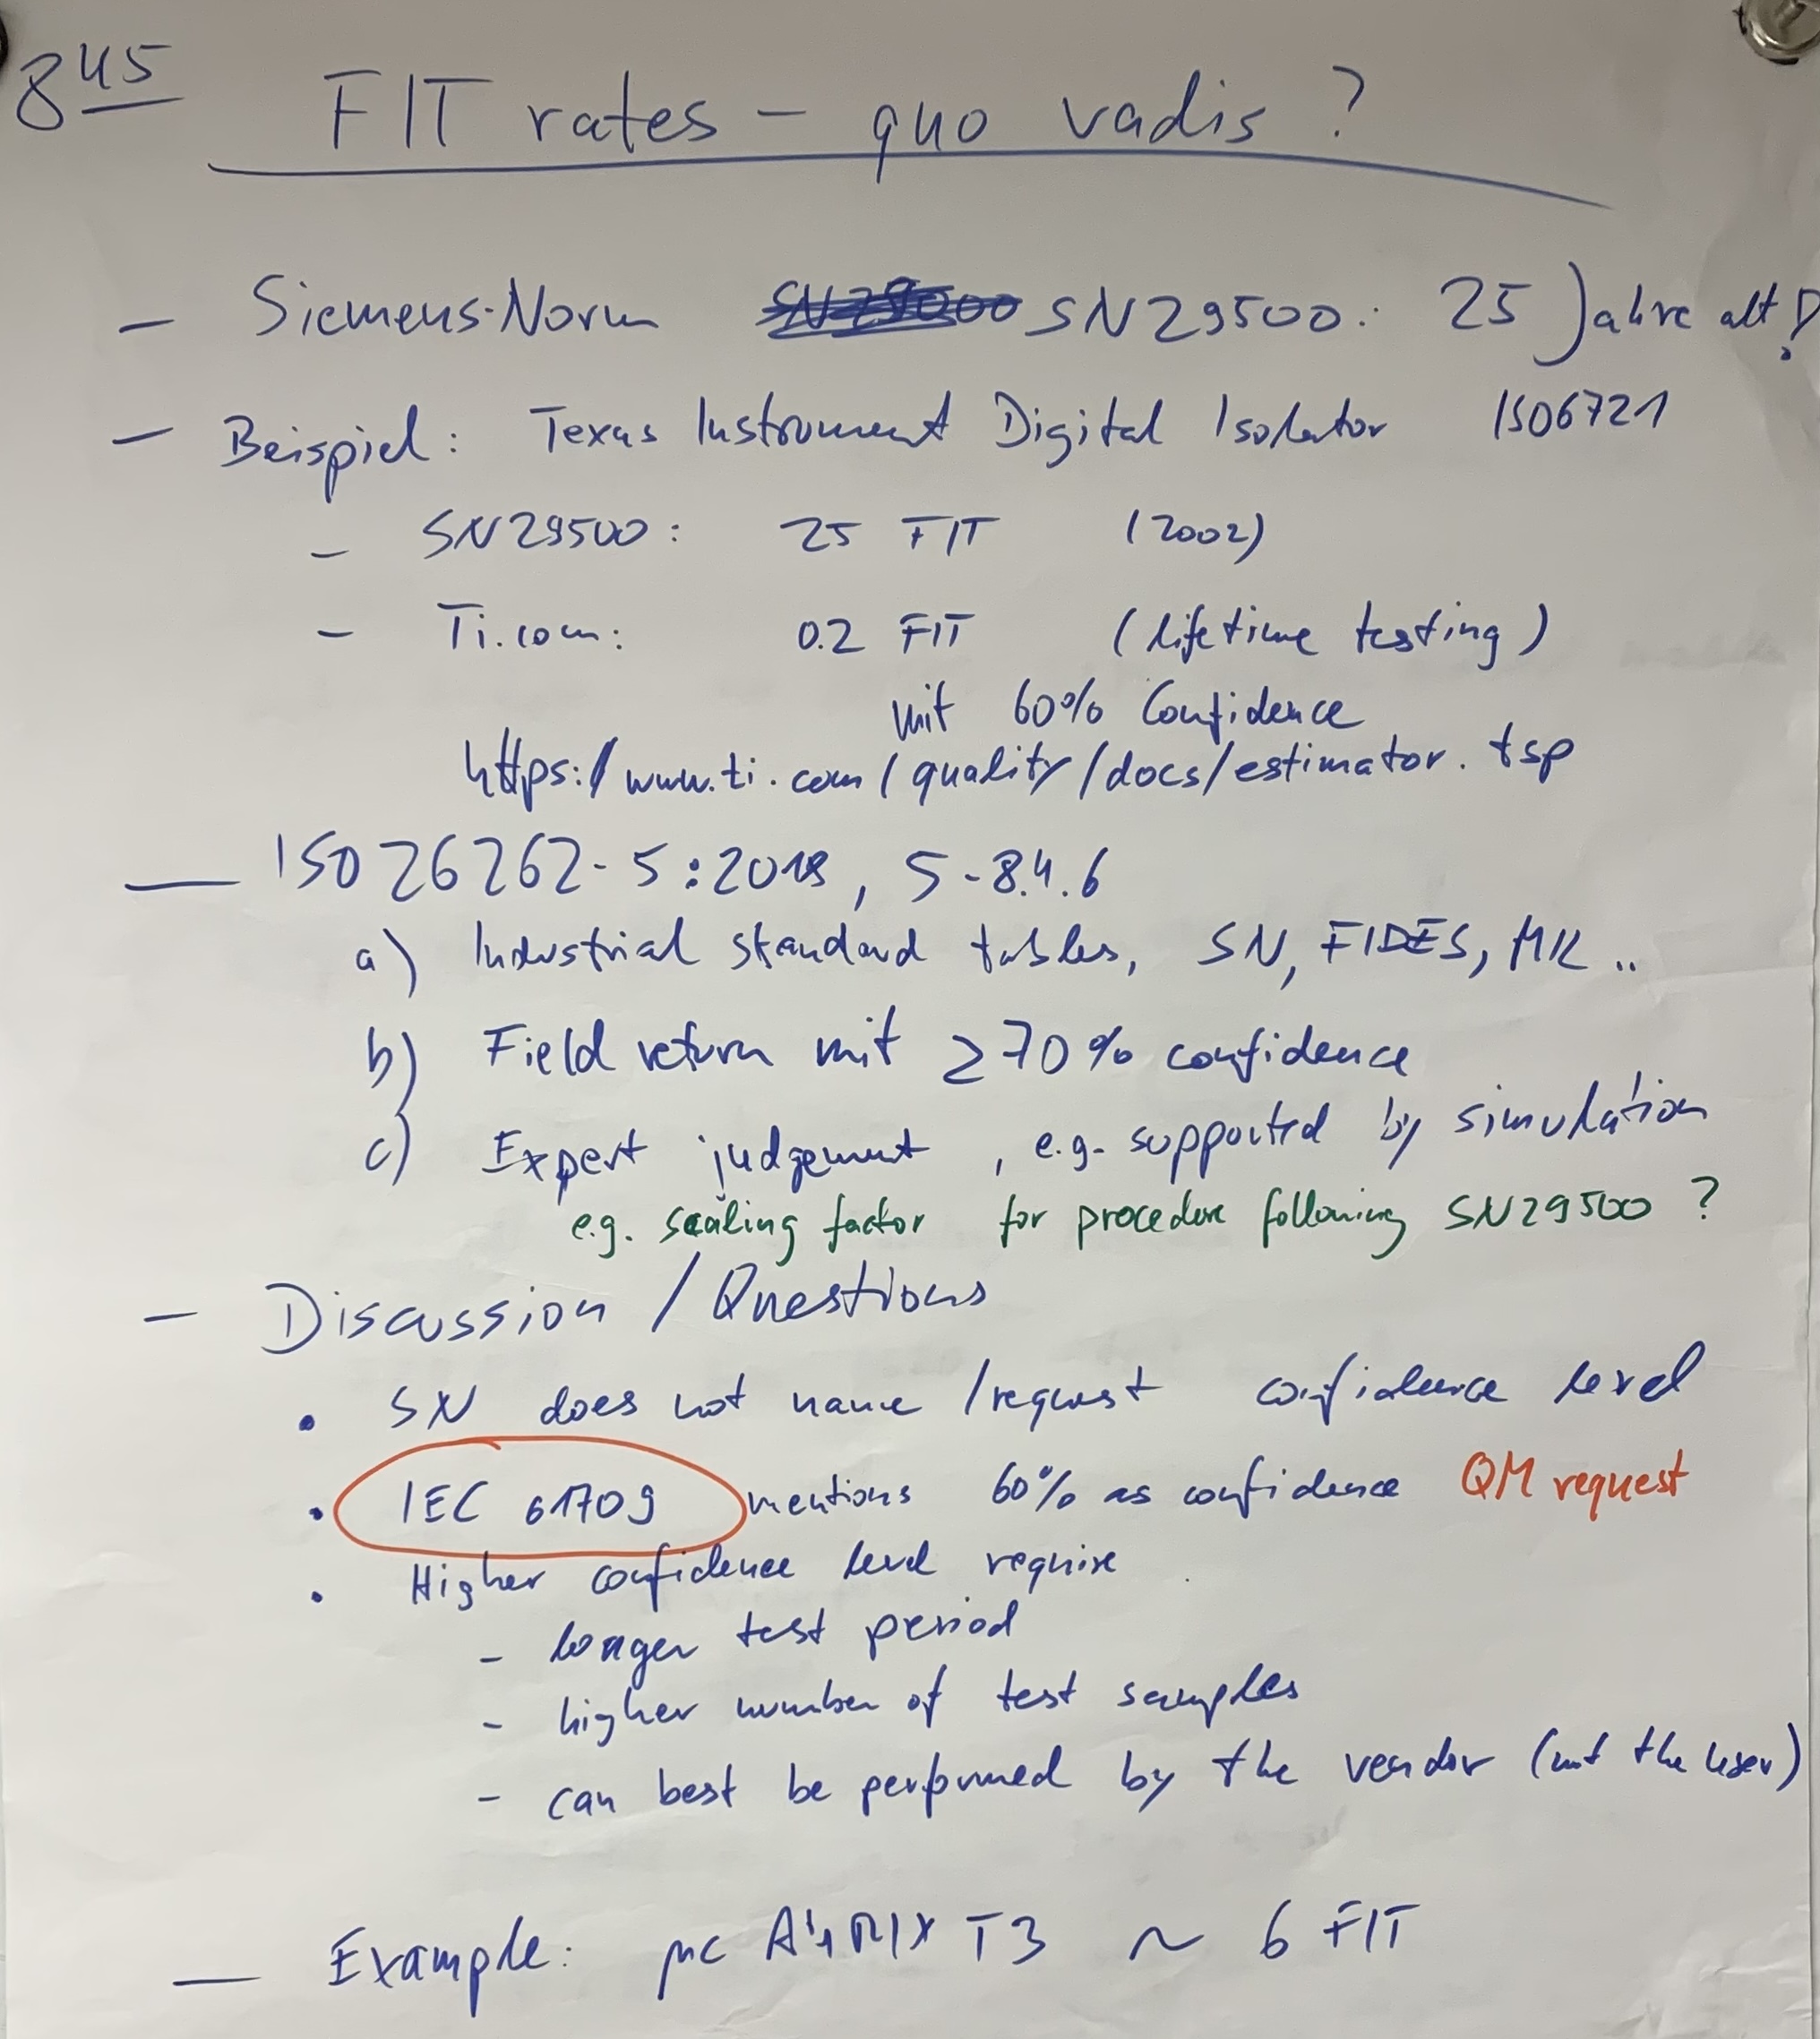 8 45 FIT rates – quo vadis ?
– Siemens-Norm SN29500: 25 Jahre alt!
– Beispiel: Texas Instrument Digital Isolator ISO6721
– SN29500: 25 FIT (2002)
– Ti.com: 0.2 FIT (lifetime testing)
mit 60% Confidence
https://www.ti.com/quality/docs/estimator.tsp
— ISO 26262-5:2018, 5-8.4.6
a) Industrial standard tables, SN, FIDES, MIL ..
b) Field return mit ≥70% confidence
c) Expert judgement, e.g. supported by simulation
e.g. scaling factor for procedure following SN29500 ?
– Discussion / Questions
• SN does not name /request confidence level
• IEC 61709 mentions 60% as confidence QM request
• Higher confidence level require
– longer test period
– higher number of test samples
– can best be performed by the vendor (not the user)
— Example: µC AURIX T3 ~ 6 FIT